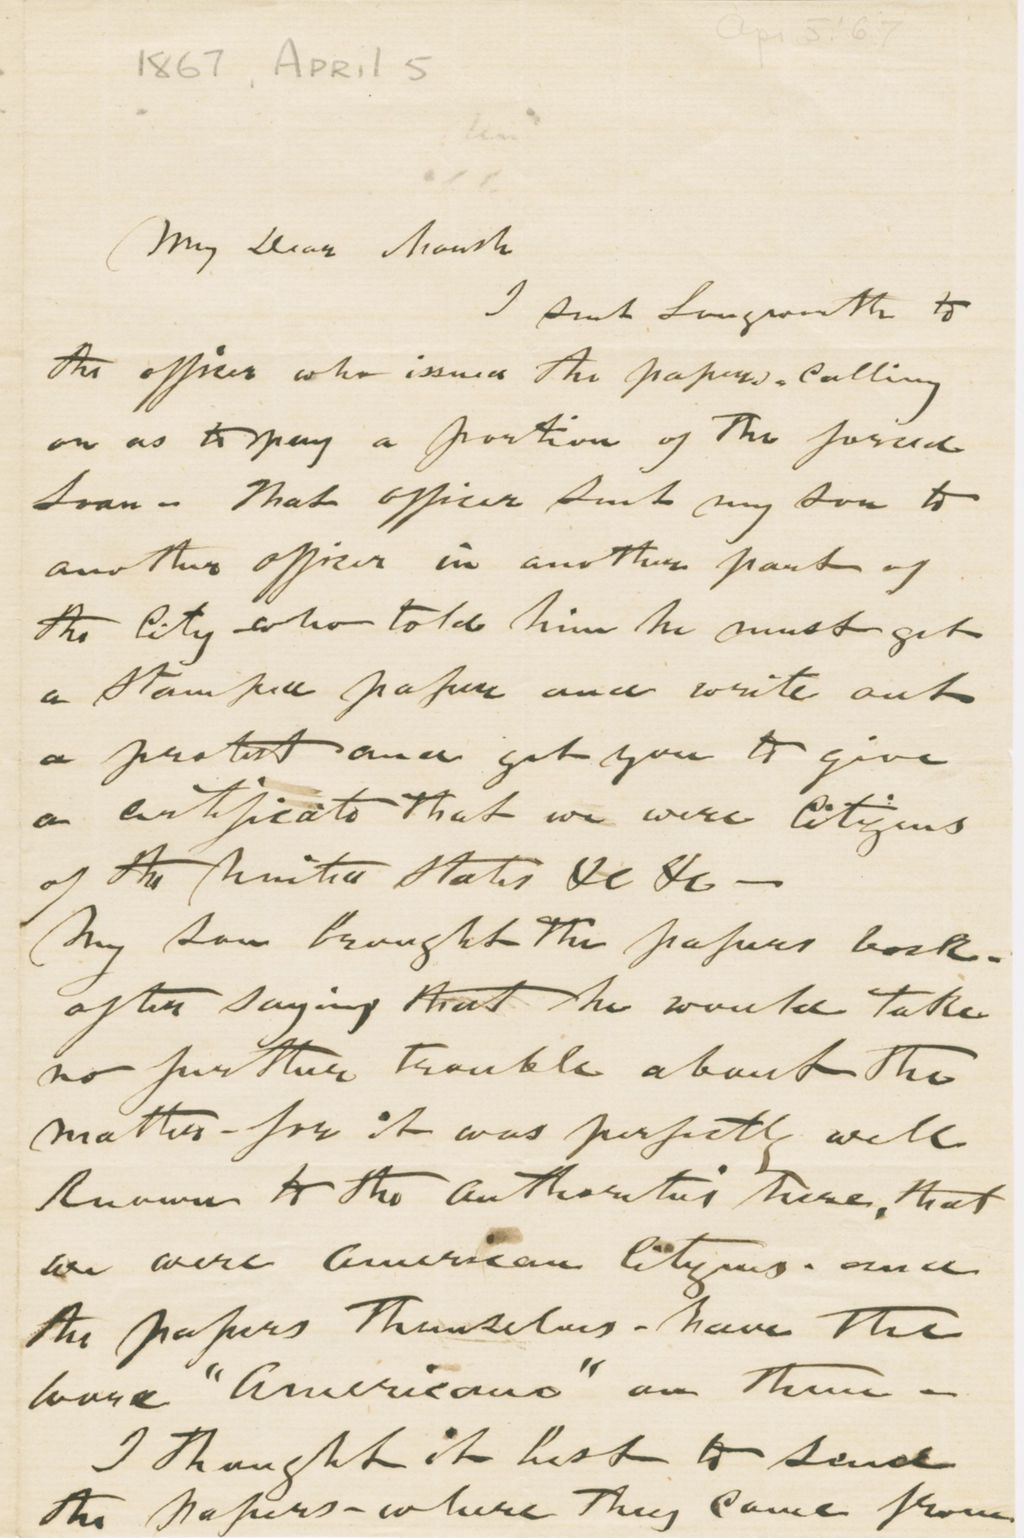 Apr 5. '67
1867, April 5
My Dear Marsh
I sent Longworth to
the officer who issued the papers. Calling
on us to pay a portion of the forced
Loan - That officer sent my son to
another officer in another part of
the City who told him he must get
a stamped paper and write out
a protest and get you to give
a certificate that we were Citizens
of the United States &c &c —
My son brought the papers back -
after saying that he would take
no further trouble about the
matter - for it was perfectly well
known to the authorities here, that
we were American Citizens. and
the papers themselves - have the
word "Americano" on them -
I thought it best to send
the papers - where they came from